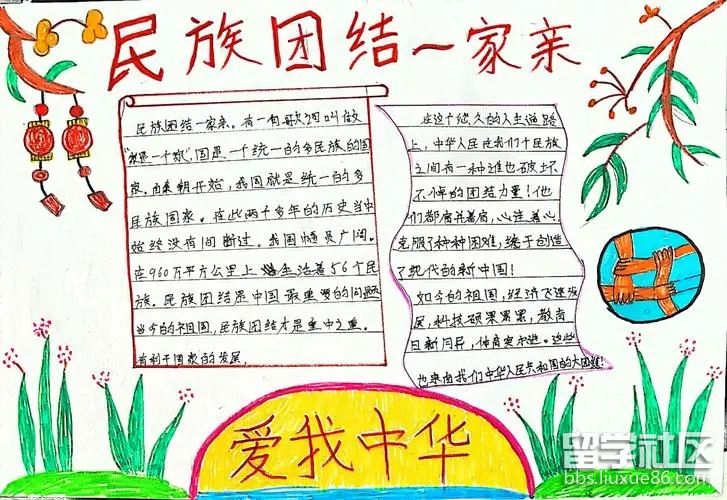 民族团结一家亲
民族团结一家亲。有一句歌词叫做
是一个家",国是一个统一的多民族的国
家。由秦朝开始,我国就是统一的多
民族国家。在此两千多年的历史当中
始终没有间断过。我国幅员广阔。
在960万平方公里上生活着56个民
族。民族团结是中国最重要的问题
当今的祖国,民族团结才是重中之重。
有利于国家的发展.
在这个悠久的人生道路
上,中华人民在我们个民族
之间有一种谁也破坏
不掉的团结力量!他
们都肩并着肩,心连着心
克服了种种困难,终于创造
了现代的新中国!
如今的祖国,经济飞速发
展,科技硕果累累,教育
日新月异,体育。这些
也来自我们中华人民共和国的大团结!
爱我中华
留学社区
bbs.liuxue86.com